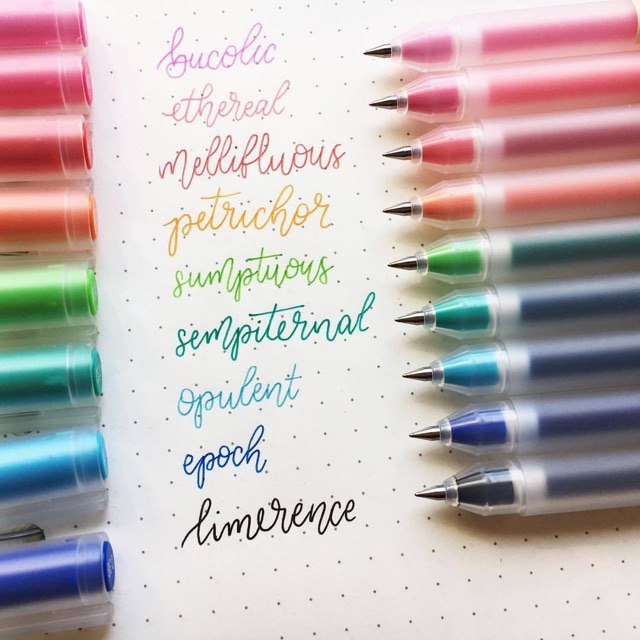 bucolic
ethereal
mellifluous
petrichor
sumptuous
sempiternal
opulent
epoch
limerence